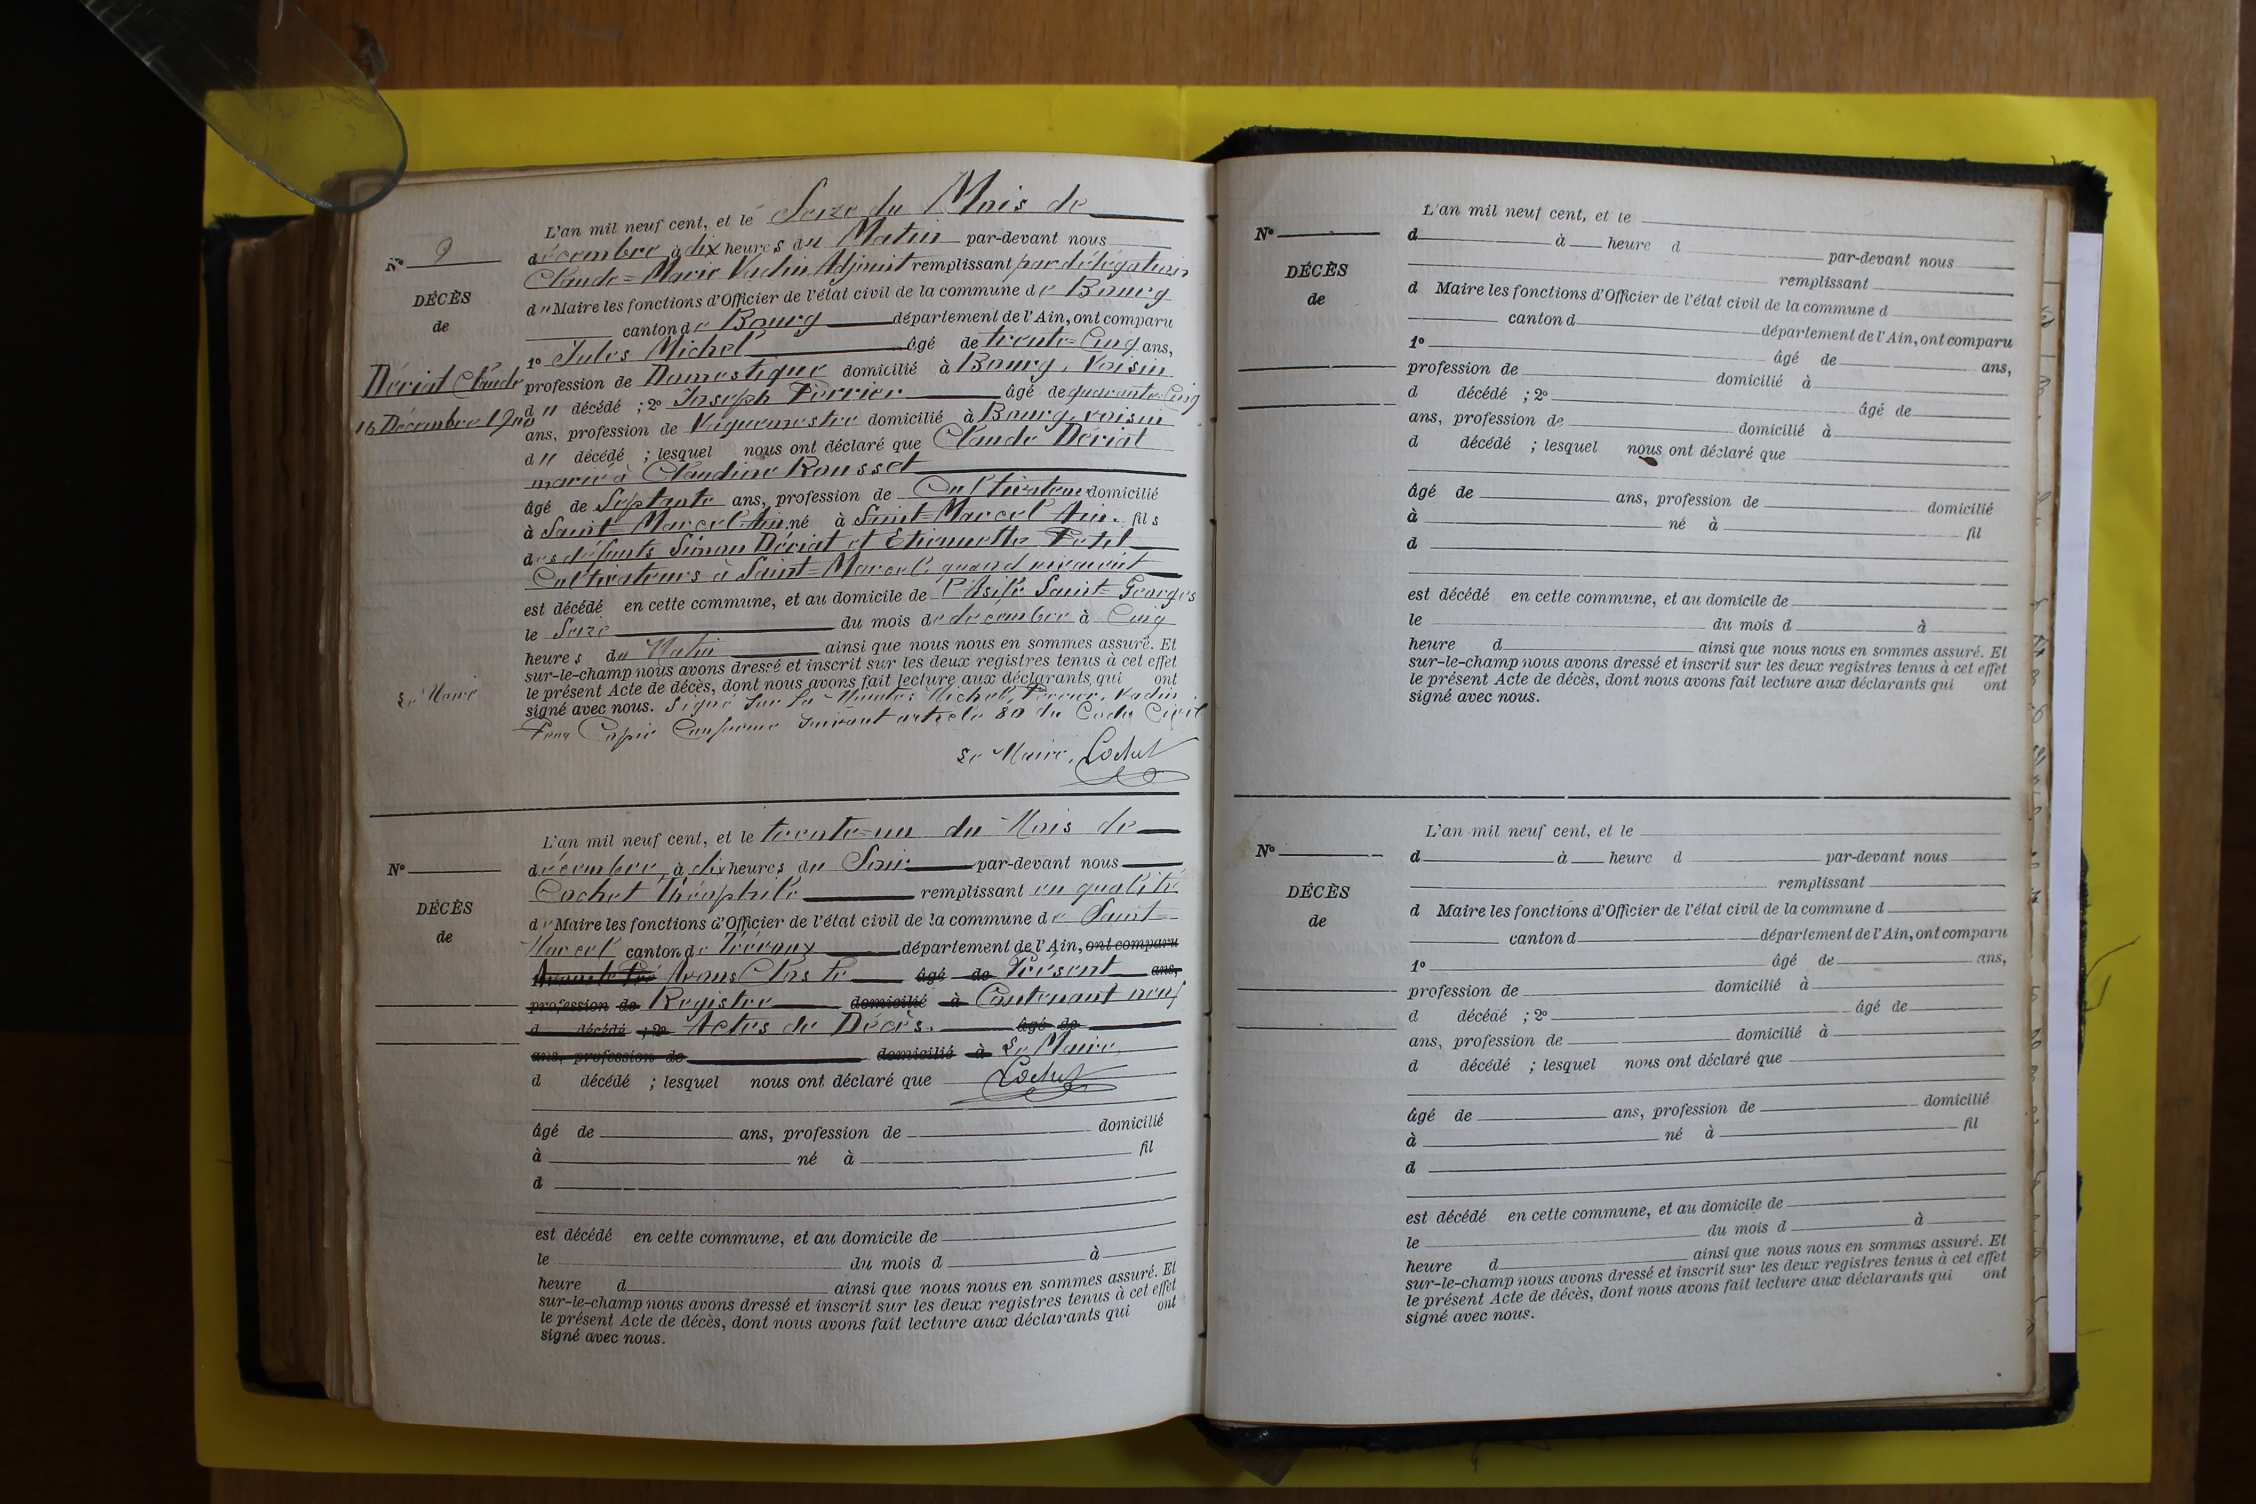 N° 9
DÉCÈS
de
Dériat Claude
16 Décembre 1900
Le Maire
L'an mil neuf cent, et le Seize du Mois de
décembre à dix heures du Matin par-devant nous
Claude=Marie Vadin Adjoint remplissant par délégation
du Maire les fonctions d'Officier de l'état civil de la commune de Bourg
canton de Bourg département de l'Ain, ont comparu
1° Jules Michel âgé de trente=Cinq ans,
profession de Domestique domicilié à Bourg, Voisin
du décédé ; 2° Joseph Perrier âgé de quarante=Cinq
ans, profession de Vaguemestre domicilié à Bourg, voisin
du décédé ; lesquel nous ont déclaré que Claude Dériat
marié à Claudine Rousset
âgé de Septante ans, profession de Cultivateur domicilié
à Saint=Marcel Ain né à Saint=Marcel Ain. fils
des défunts Simon Dériat et Etiennette
Cultivateurs à Saint=Marcel, quand vivaient
est décédé en cette commune, et au domicile de l'Asile Saint=Georges
le Seize du mois de décembre à Cinq
heures du Matin ainsi que nous nous en sommes assuré. Et
sur-le-champ nous avons dressé et inscrit sur les deux registres tenus à cet effet
le présent Acte de décès, dont nous avons fait lecture aux déclarants, qui ont
signé avec nous. Signé Sur la Minute: Michel, Perrier, Vadin.
Pour Copie Conforme Suivant article 80 du Code Civil
Le Maire, Cochet
N°
DÉCÈS
de
L'an mil neuf cent, et le trente=un du Mois de
décembre, à dix heures du Soir par-devant nous
Cochet Théophile remplissant en qualité
de Maire les fonctions d'Officier de l'état civil de la commune de Saint=
Marcel canton de Trévoux département de l'Ain, ont comparu
Avons Clos le âgé de Présent ans,
profession de Registre domicilié à Contenant neuf
d décédé ; 2° Actes de Décès. âgé de
ans, profession de domicilié à Le Maire,
d décédé ; lesquel nous ont déclaré que Cochet
âgé de ans, profession de domicilié
à né à fil
d
est décédé en cette commune, et au domicile de
le du mois d à
heure d ainsi que nous nous en sommes assuré. Et
sur-le-champ nous avons dressé et inscrit sur les deux registres tenus à cet effet
le présent Acte de décès, dont nous avons fait lecture aux déclarants qui ont
signé avec nous.
N°
DÉCÈS
de
L'an mil neuf cent, et le
d à heure d par-devant nous
remplissant
d Maire les fonctions d'Officier de l'état civil de la commune d
canton d département de l'Ain, ont comparu
1° âgé de ans,
profession de domicilié à
d décédé ; 2° âgé de
ans, profession de domicilié à
d décédé ; lesquel nous ont déclaré que
âgé de ans, profession de domicilié
à né à fil
d
est décédé en cette commune, et au domicile de
le du mois d à
heure d ainsi que nous nous en sommes assuré. Et
sur-le-champ nous avons dressé et inscrit sur les deux registres tenus à cet effet
le présent Acte de décès, dont nous avons fait lecture aux déclarants qui ont
signé avec nous.
N°
DÉCÈS
de
L'an mil neuf cent, et le
d à heure d par-devant nous
remplissant
d Maire les fonctions d'Officier de l'état civil de la commune d
canton d département de l'Ain, ont comparu
1° âgé de ans,
profession de domicilié à
d décédé ; 2° âgé de
ans, profession de domicilié à
d décédé ; lesquel nous ont déclaré que
âgé de ans, profession de domicilié
à né à fil
d
est décédé en cette commune, et au domicile de
le du mois d à
heure d ainsi que nous nous en sommes assuré. Et
sur-le-champ nous avons dressé et inscrit sur les deux registres tenus à cet effet
le présent Acte de décès, dont nous avons fait lecture aux déclarants qui ont
signé avec nous.